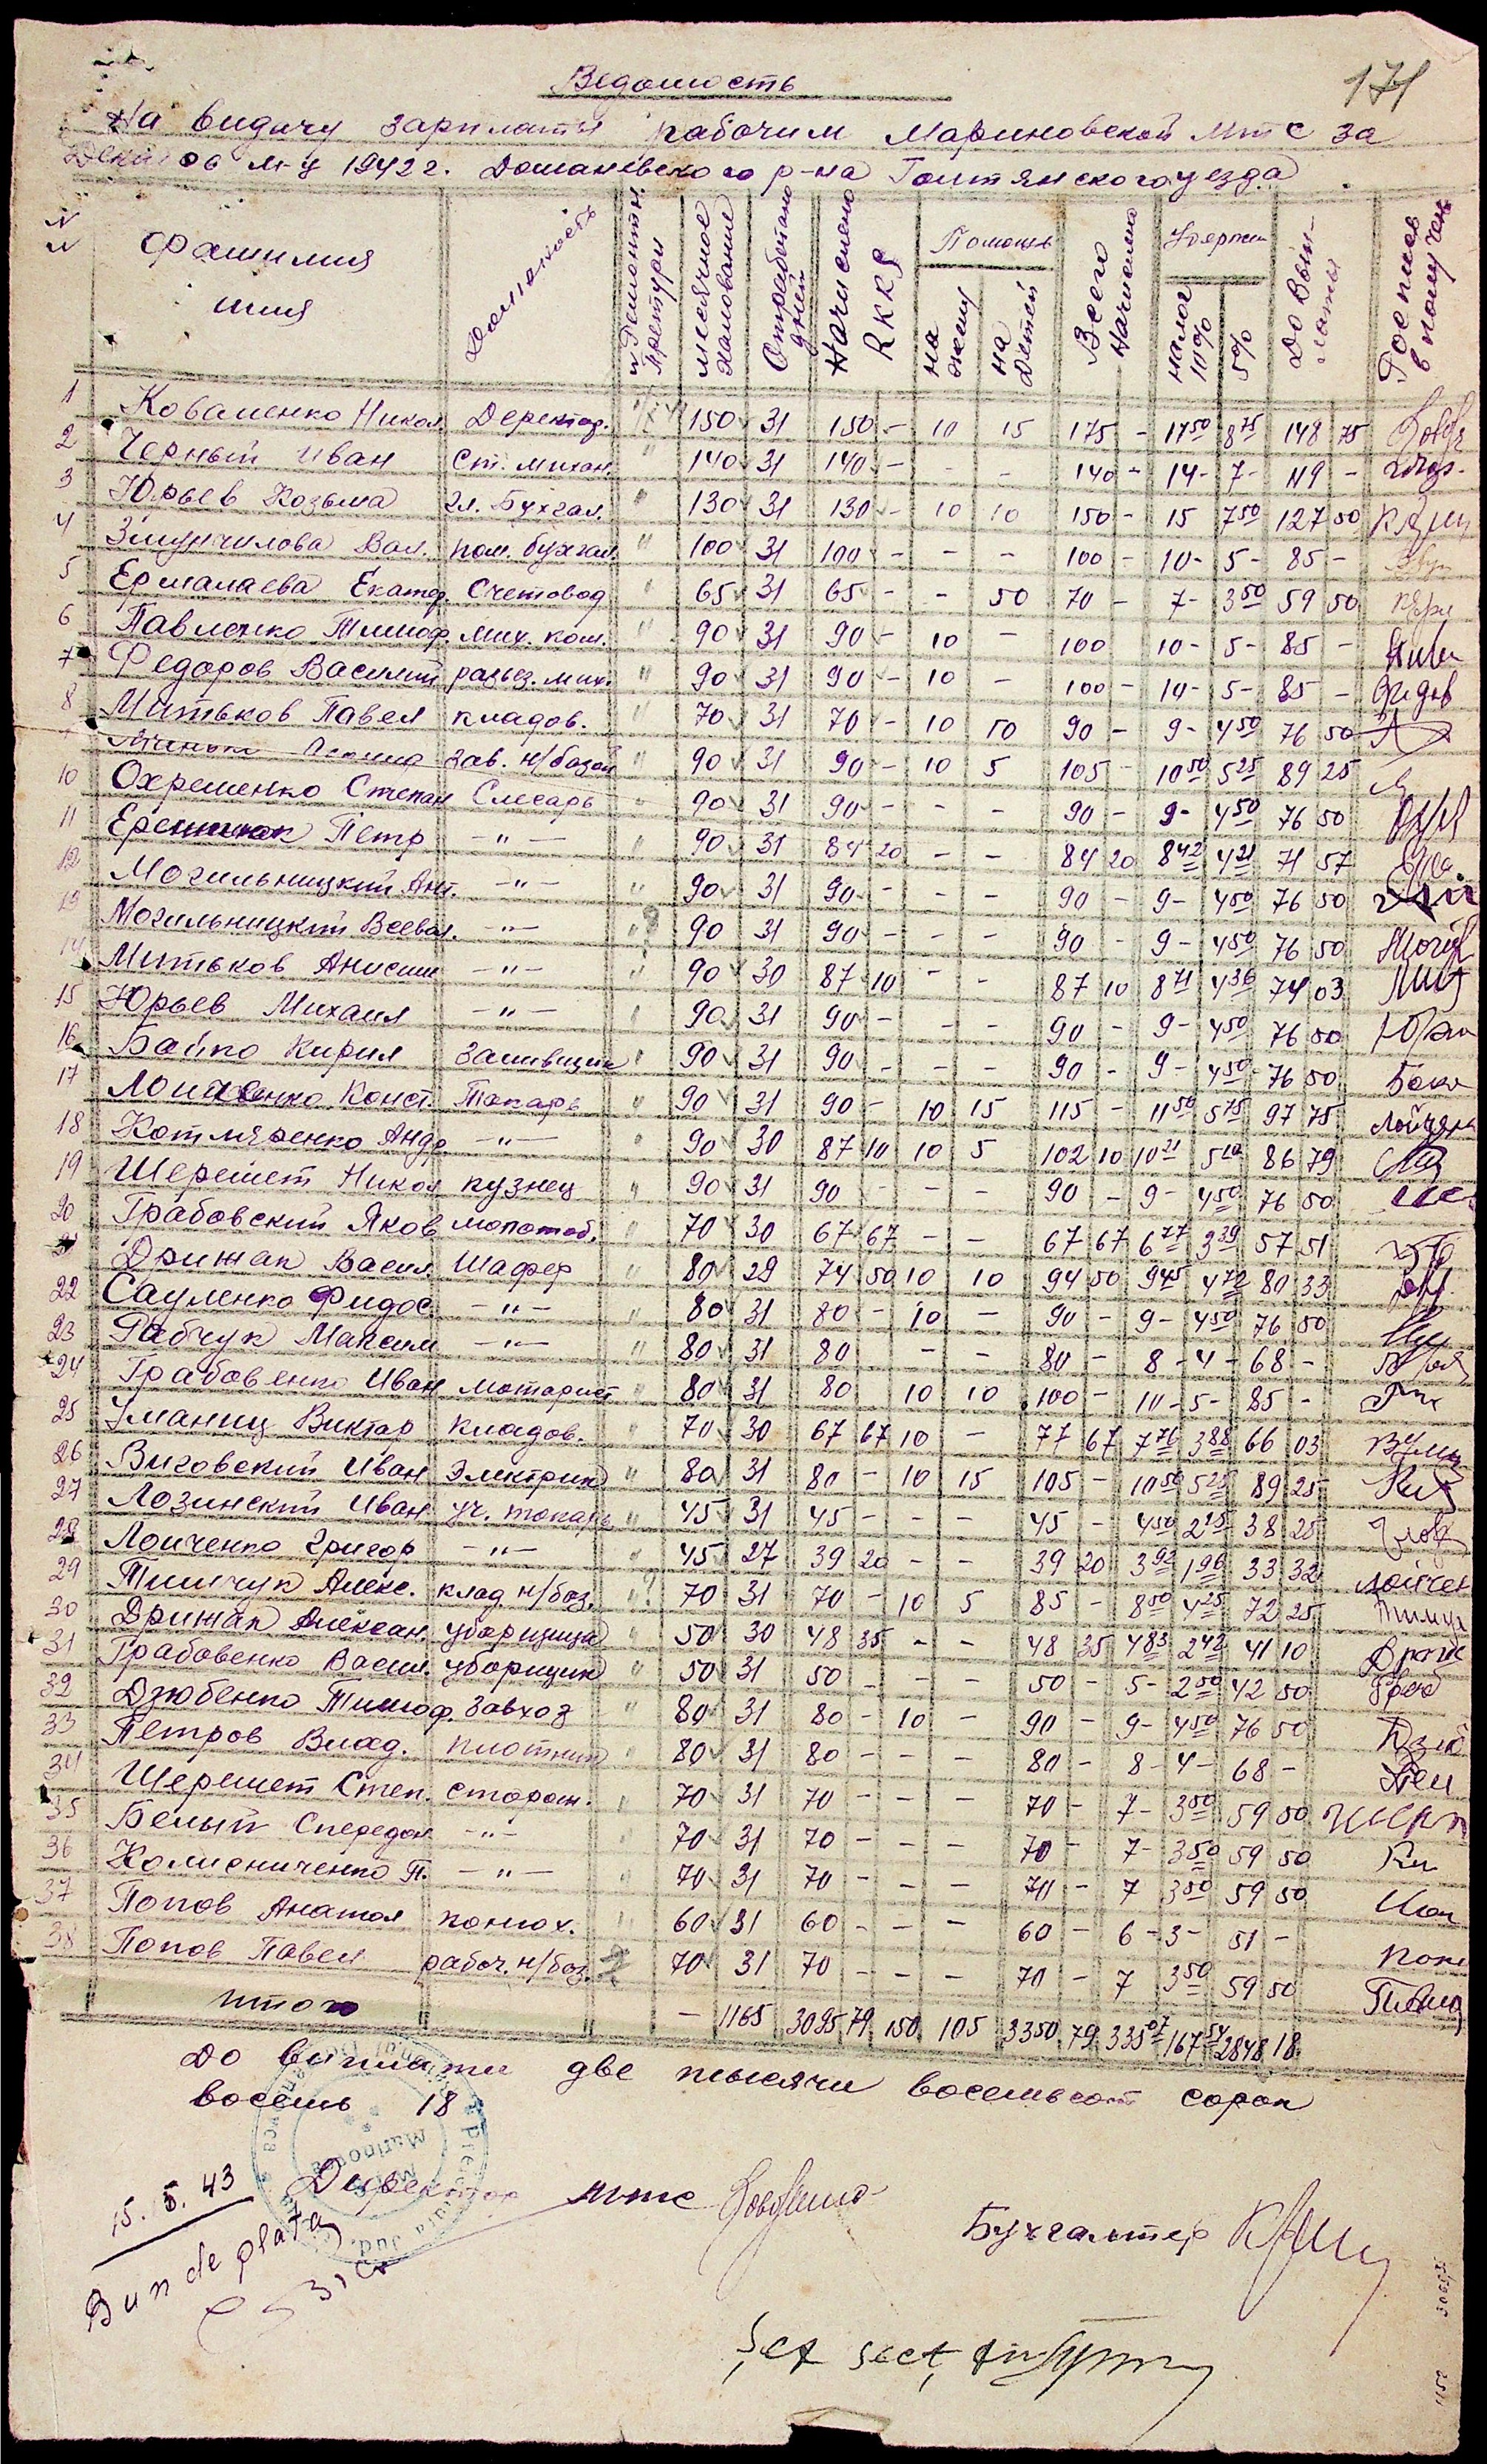 171
Ведомость
На видачу зарплаты рабочим Мариновской мтс за
м-ц 1942 г. Доманевского р-на Голтянского уезда
Фамилия имя
Должность
месячное жалование
Отработано дней
Начислено RKKS
Помощь
на жену
на детей
Всего начислено
Удержан
налог 10%
5%
До выплаты
Роспись в получен
1 Коваленко Никол. Деректор. 150 31 150 - 10 15 175 - 17 50 8 75 148 75
2 Черный Иван Ст. михан. 140 31 140 - - - 140 - 14 - 7 - 119 -
3 Юрьев Козьма Гл. Бухгал. 130 31 130 - 10 10 150 - 15 7 50 127 50
4 Вал. пом. бухгал. 100 31 100 - - - 100 - 10 - 5 - 85 -
5 Ермалаева Екатер. Счетовод 65 31 65 - - 50 70 - 7 - 3 50 59 50
6 Павленко Тимоф. мих. ком. 90 31 90 - 10 - 100 10 - 5 - 85 -
7 Федоров Василий разъез. мих. 90 31 90 - 10 - 100 - 10 - 5 - 85 -
8 Митьков Павел кладов. 70 31 70 - 10 10 90 - 9 - 4 50 76 50
зав. н/базой 90 31 90 - 10 5 105 - 10 50 5 25 89 25
10 Охременко Степан Слесарь 90 31 90 - - - 90 - 9 - 4 50 76 50
11 Петр -"- 90 31 84 20 - - 84 20 8 42 4 21 71 57
12 Могильницкий Ант. -"- 90 31 90 - - - 90 - 9 - 4 50 76 50
13 Могильницкий Всевол. -"- 90 31 90 - - - 90 - 9 - 4 50 76 50
14 Митьков Анисим -"- 90 30 87 10 - - 87 10 8 71 4 36 74 03
15 Юрьев Михаил -"- 90 31 90 - - - 90 - 9 - 4 50 76 50
16 Бойко Кирил Заливщик 90 31 90 - - - 90 - 9 - 4 50 76 50
17 Лойченко Конст. Токарь 90 31 90 - 10 15 115 - 11 50 5 75 97 75
18 Котляренко Андр. -"- 90 30 87 10 10 5 102 10 10 21 5 10 86 79
19 Шеремет Никол кузнец 90 31 90 - - - 90 - 9 - 4 50 76 50
20 Грабовский Яков молотоб. 70 30 67 67 - - 67 67 6 77 3 39 57 51
21 Дрижак Васил. Шофер 80 29 74 50 10 10 94 50 9 45 4 72 80 33
22 Сауленко Фидос. -"- 80 31 80 - 10 - 90 - 9 - 4 50 76 50
23 Рабчук Максим -"- 80 31 80 - - 80 - 8 - 4 - 68 -
24 Грабовенко Иван моторист 80 31 80 10 10 100 - 10 - 5 - 85 -
25 Уманец Виктор кладов. 70 30 67 67 10 - 77 67 7 76 3 88 66 03
26 Виговский Иван Электрик 80 31 80 - 10 15 105 - 10 50 5 25 89 25
27 Лозинский Иван уч. токарь 45 31 45 - - - 45 - 4 50 2 25 38 25
28 Лойченко Григор -"- 45 27 39 20 - - 39 20 3 92 1 96 33 32
29 Тимчук Алекс. клад н/баз. 70 31 70 - 10 5 85 - 8 50 4 25 72 25
30 Дрижак Алексан. уборщица 50 30 48 35 - - 48 35 4 83 2 42 41 10
31 Грабовенко Васил. уборщик 50 31 50 - - - 50 - 5 - 2 50 42 50
32 Дзюбенко Тимоф. завхоз 80 31 80 - 10 - 90 - 9 - 4 50 76 50
33 Петров Влад. плотник 80 31 80 - - - 80 - 8 - 4 - 68 -
34 Шеремет Степ. сторож. 70 31 70 - - - 70 - 7 - 3 50 59 50
35 Белый Спередон -"- 70 31 70 - - - 70 - 7 - 3 50 59 50
36 Колисниченко П. -"- 70 31 70 - - - 70 - 7 3 50 59 50
37 Попов Анатол конюх. 60 31 60 - - - 60 - 6 - 3 - 51 -
38 Попов Павел рабоч. н/баз. 70 31 70 - - - 70 - 7 3 50 59 50
Итого - 1165 3095 79 150 105 3350 79 335 07 167 54 2848 18
До виплати две тысячи восемьсот сорок
восемь 18
15. 5. 43
Директор мтс
Бухгалтер
Bun de plată
Șef secț.